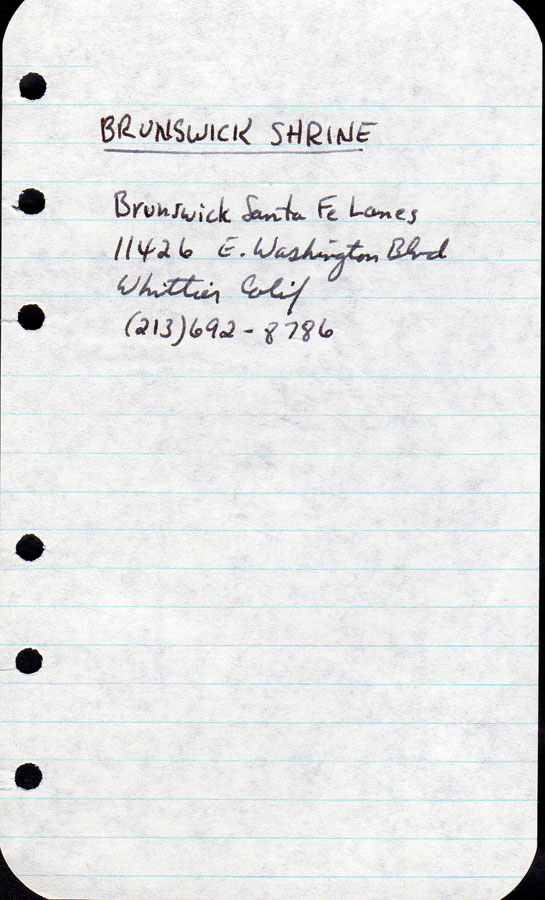 BRUNSWICK SHRINE
Brunswick Santa Fe Lanes
11426 E. Washington Blvd
Whittier Calif
(213)692-8786